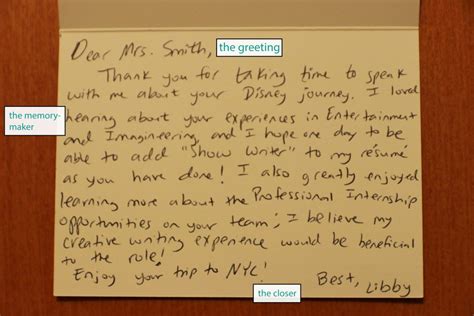 Dear Mrs. Smith, the greeting
Thank you for taking time to speak
with me about your Disney journey. I loved
the memory-
maker
hearing about your experiences in Entertainment
and Imagineering and I hope one day to be
able to add "Show Writer" to my résumé
as you have done! I also greatly enjoyed
learning more about the Professional Internship
opportunities on your team; I believe my
creative writing experience would be beneficial
to the role!
Enjoy your trip to NYC!
Best, Libby
the closer